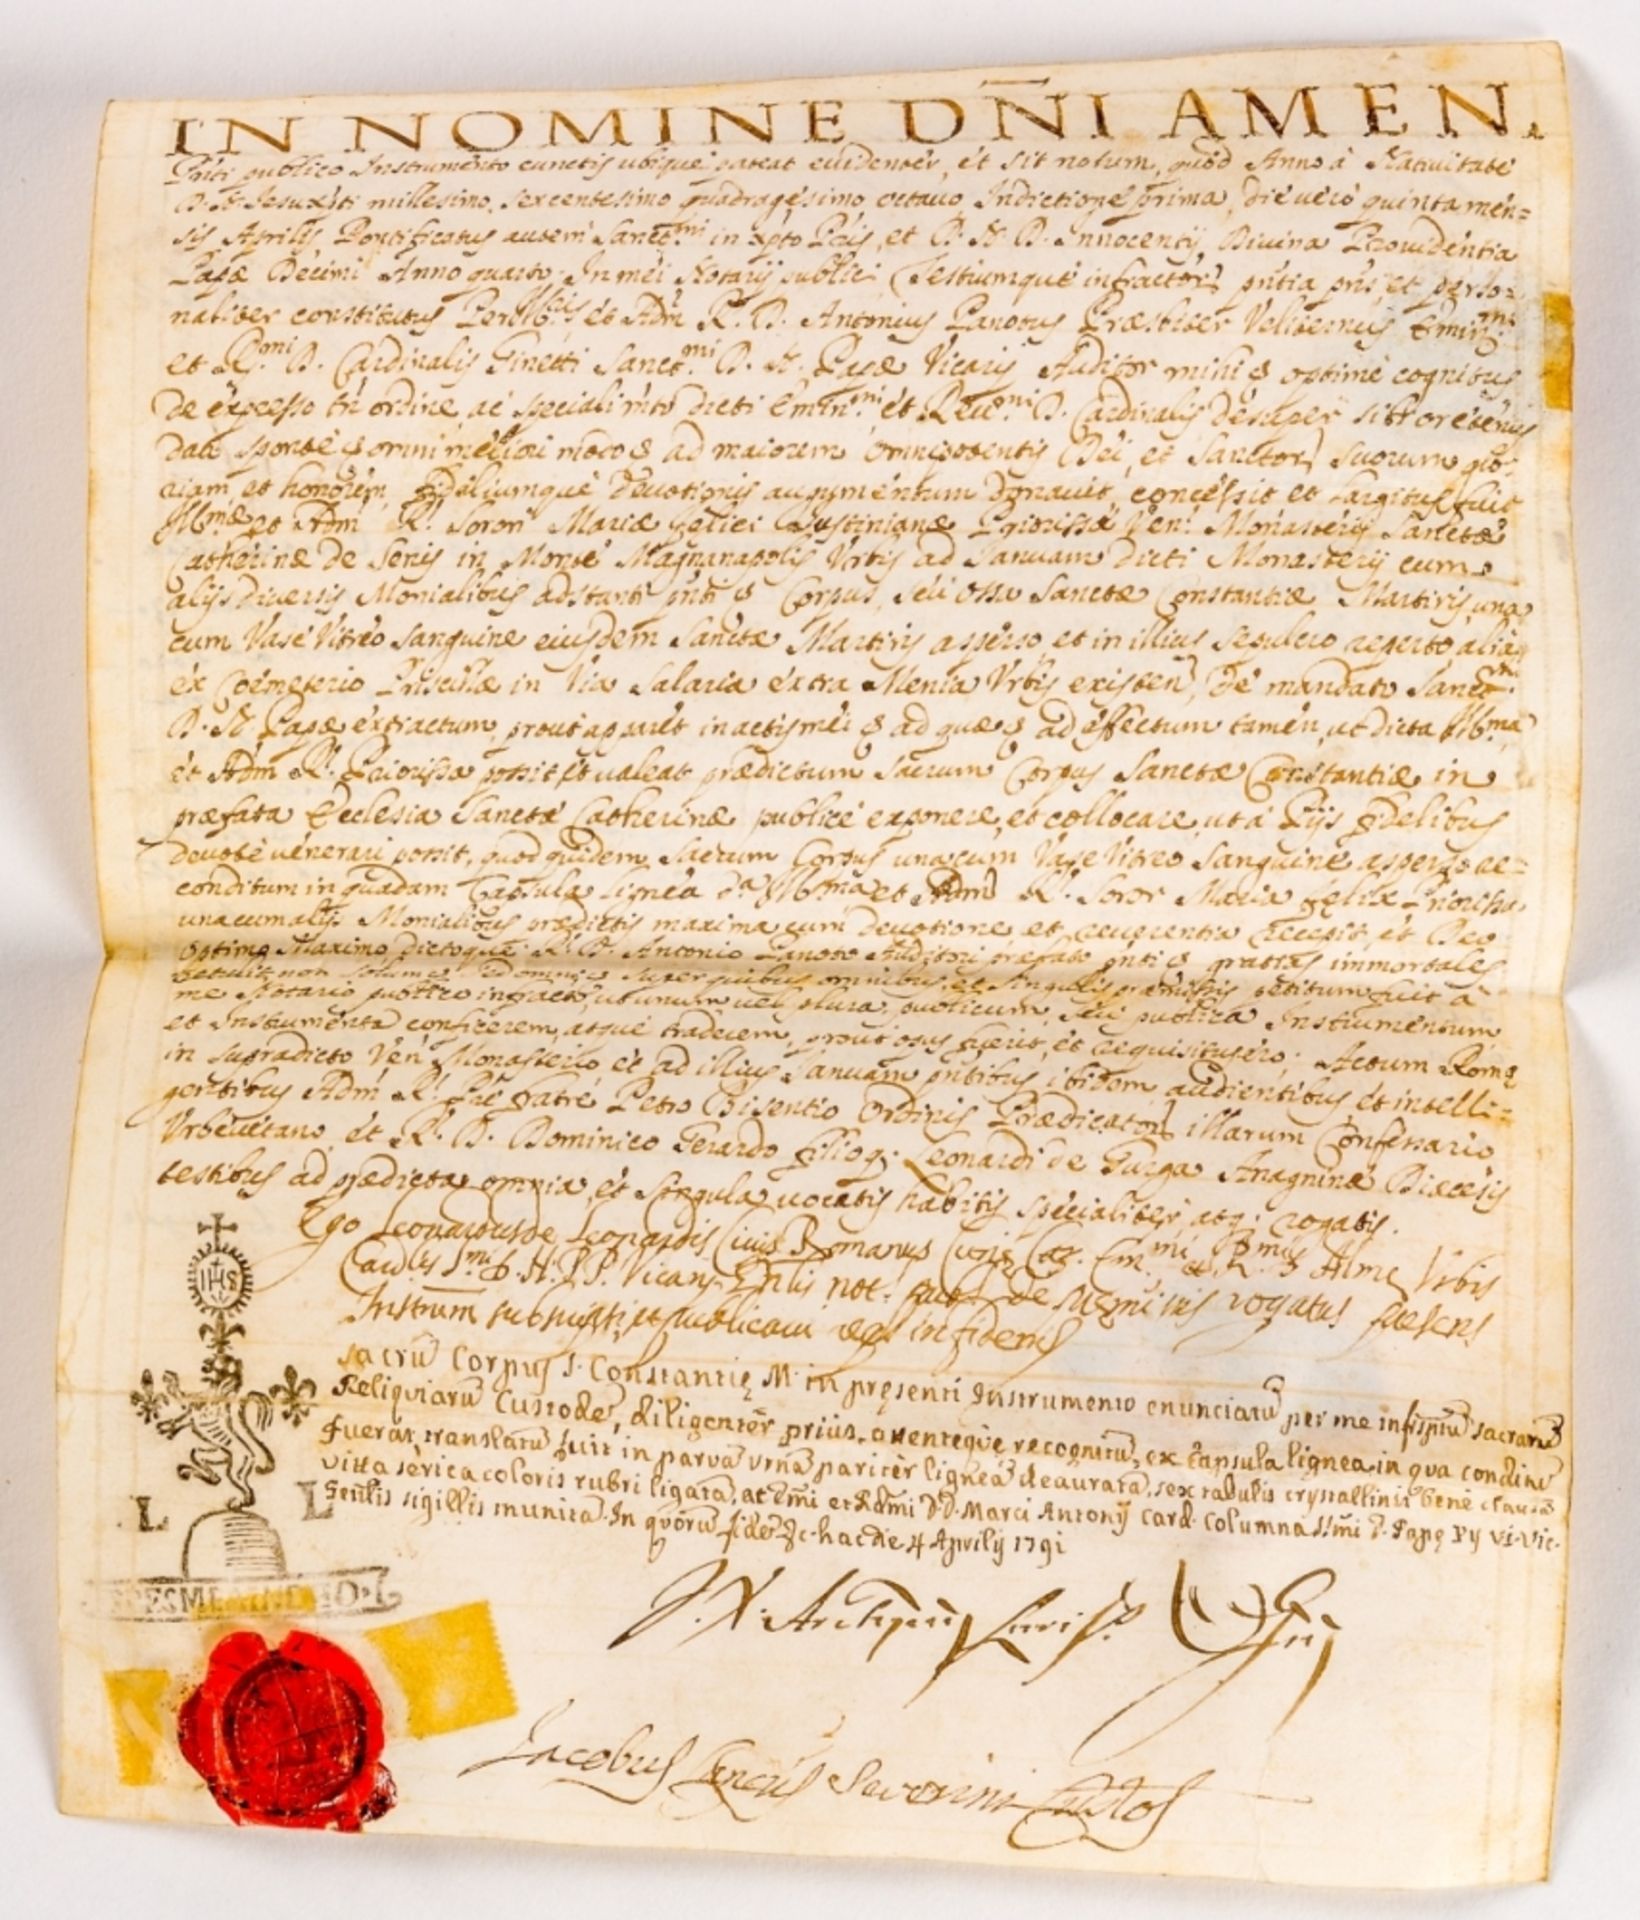 IN NOMINE DÑI AMEN.
Pñti publico Instrumento cunctis ubique pateat euidenter, et sit notum, quod Anno à Natiuitate
D. N. Jesu Xpti millesimo sexcentesimo quadragesimo octauo Indictione prima, die uerò quinta men=
sis Aprilis Pontificatus autem Sanct.mi in Xpto Pris, et D. N. D. Innocentij Diuina Prouidentia
Papæ Decimi Anno quarto. In mei Notarij publici Testiumque infractor. pñtia pñs, et perso=
naliter constitutus Perill.is et Adm R. D. Antonius Panotus Præsbiter Veliternus Emin.mi
et R.mi D. Cardinalis Ginetti Sanct.mi D. N. Papæ Vicarij Auditor mihi & optimè cognitus
de expresso tñ ordine, ac speciali mto dicti Emin.mi et Reu.mi D. Cardinalis desuper sibi oretenus
dato sponte & omni meliori modo & ad maiorem omnipotentis Dei, et Sanctor. suorum glo-
riam, et honorem, fideliumque deuotionis augumentum donauit, concessit et largitus fuit
Ill.mæ et Adm R. Soror Mariæ Felici Justinianæ Priorissæ Ven. Monasterij Sanctæ
Catherinæ de Senis in Monte Magnanapolis Vrbis ad Januam dicti Monasterij cum
alijs diuersis Monialibus adstanti pñti & Corpus, seù ossa Sanctæ Constantiæ Martiris una
cum Vase Vitreo sanguine eiusdem Sanctæ Martiris asperso, et in illius sepulcro reperto aliàs
ex Cœmeterio Priscillæ in Via Salaria extra Menia Vrbis existen, de mandato Sanct.mi
D. N. Papæ extractum, prout apparet in actis mei & ad quæ & ad effectum tamen, ut dicta Ill.ma
et Adm R. Priorissa possit et ualeat prædictum sacrum Corpus Sanctæ Constantiæ in
præfata Ecclesia Sanctæ Catherinæ publicè exponere, et collocare, ut à Pijs fidelibus
deuotè uenerari possit, quod quidem Sacrum Corpus unacum Vase Vitreo sanguine asperso re=
conditum in quadam Capsula lignea da Ill.ma et Adm R. Soror Maria Felix Priorissa
unacum alijs Monialibus prædictis maxima cum deuotione, et reuerentia recepit, et Deo
Optimo Maximo, dictoque R. D. Antonio Panoto Auditori præfato pñti & gratias immortales
retulit non solum & sed omni & super quibus omnibus, et singulis præmissis petitum fuit à
me Notario publico infracto, ut unum uel plura publicum, seù publica Instrumentum
et Instrumenta conficerem, atque traderem, prout opus fuerit, et requisitus ero; Actum Romæ
in supradicto Ven Monasterio et ad illius Januam pñtibus ibidem, audientibus, et intelli=
gentibus Adm R. Pre fratre Petro Bisentio Ordinis Prædicator. illarum Confessario
Vrbeuetano, et R. D. Dominico Gerardo filio q. Leonardi de Gurga Anagninæ Diæcesis
testibus ad prædicta omnia, et singula uocatis habitis specialiter, atq; rogatis.
Ego Leonardus de Leonardis Ciuis Romanus Curiæ Em.mi R.mi D Almæ Vrbis
Card.lis S.mi D. N. P. P. Vicarij not. pub. de præmissis rogatus presens
Instrum subscripsi, et publicaui in fidem
Sacrũ Corpus S. Constantię M. in pręsenti Instrumento enunciatũ per me infrsptũ sacrarũ
Reliquiarũ Custodẽ, diligentèr priùs, attenteque recognitũ, ex capsula lignea in qua conditũ
fuerat, translatũ fuit in parvã vrnã paritèr ligneã deauratã, sex tabulis crystallinis benè clausã
vitta sèrica coloris rubri ligatã, ac Em̃i et Rdm̃i D.D. Marci Antonij Card. Columna SSm̃i D. Papę Py VI. Vic.
Gen̄lis sigillis munitã. In quorũ fidẽ &c. hac die 4 Aprilis 1791
L L
Jacobus Severini Custos
IHS
SPES MEA IN DEO